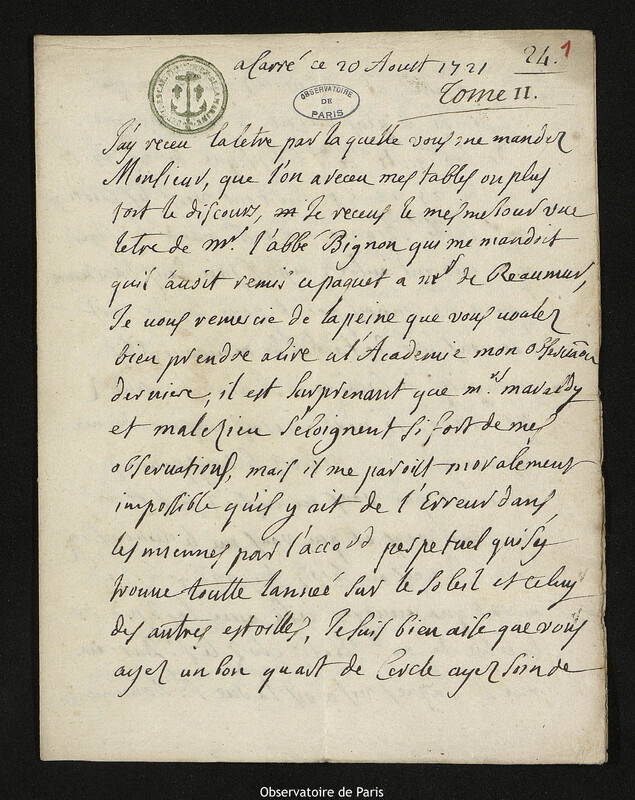 a Carré ce 20 Aoust 1721
24. 1
Tome II.
OBSERVATOIRE DE PARIS
J'ay receu la letre par la quelle vous me mandez
Monsieur, que l'on a receu mes tables ou plus
tost le discours, Je receus le mesme jour une
letre de mr. l'abbé Bignon qui me mandoit
quil avoit remis ce paquet a mr de Reaumur,
Je vous remercie de la peine que vous voulez
bien prendre a lire a l'Academie mon observaõn
derniere, il est surprenant que mrs maraldy
et malezieu s'éloignent si fort de mes
observations, mais il me paroist moralement
impossible qu'il y ait de l'Erreur dans
les miennes par l'accord perpetuel qui sy
trouve toutte lanneé sur le Soleil et celuy
des autres estoilles, Je suis bien aise que vous
ayez un bon quart de Cercle ayez soin de
Observatoire de Paris